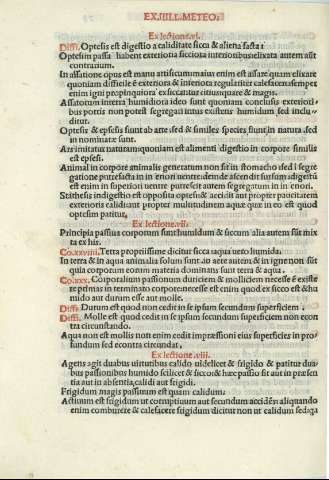 EX.IIII. METEO:
Ex lectione.vi.
Diffi. Optesis est digestio a caliditate sicca & aliena facta:
Optesim passa habent exteriora sicciora interioribus elixata autem aīst
contrarium.
In assatione opus est manu artificum maius enim est assare quam elixare
quoniam difficile ē exteriora & interiora regulariter calefacere semper
enim igni propinquiora exsiccatur citius quare & magis.
Assatorum interra humidiora ideo sunt quoniam conclusis exteriori-
bus poris non potest segregari intus existens humidum, sed inclu-
ditur.
Optesis & epsesis sunt ab arte sed & similes species sunt in natura sed
in nominatæ sunt.
Ars imitatur naturam quoniam est alimenti digestio in corpore similis
est epsesi.
Animal in corpore animalis generatum non fit in stomacho sed ī segre
gatione putrefacta in inferiori uentre deinde ascendit sursum adgustū
est enim in superiori uentre putrescit autem segregatum in inferiori.
Stathesis indigestio est opposita optesi & accidit aut propter paucitatem
exterioris caliditatis propter multitudinem aquæ quæ in eo est quod
optesim patitur.
Ex lectione.vii.
Principia passiua corporum sunt humidum & siccum alia autem sūt mix
ta ex his.
Co.xxviiii. Terra propriissime dicitur sicca aqua uero humida.
In terra & in aqua animalia solum sunt.ī aere autem & in igne non sūt
quia corporum eorum materia dominans sunt terra & aqua.
Co.xxx. Corporalium passionum duriciem & molliciem necesse ē existe
re primas in terminato corpore necesse est enim quod ex sicco est & hu
mido aut durum esse aut molle.
Diffi. Durum est quod non cedit in se ipsum secundum superficiem.
Diffi. Molle est quod cedit in se ipsum secundum superficiem non econ
tra circunstando.
Aqua non est mollis non enim cedit impræssioni eius superficies in pro
fundum sed econtra circundat,
Ex lectione.viii.
Agens agit duabus uirtutibus calido uidelicet & frigido & patitur dua
bus passionibus humido scilicet & sicco: & hæc passio fit aut in præsen
tia aut in absentia, calidi aut frigidi.
Frigidum magis passiuum est quam calidum.
Actiuum est frigidum ut corruptiuum aut secundum accidens: aliquando
enim comburere & calefacere frigidum dicitur non ut calidum sed qa